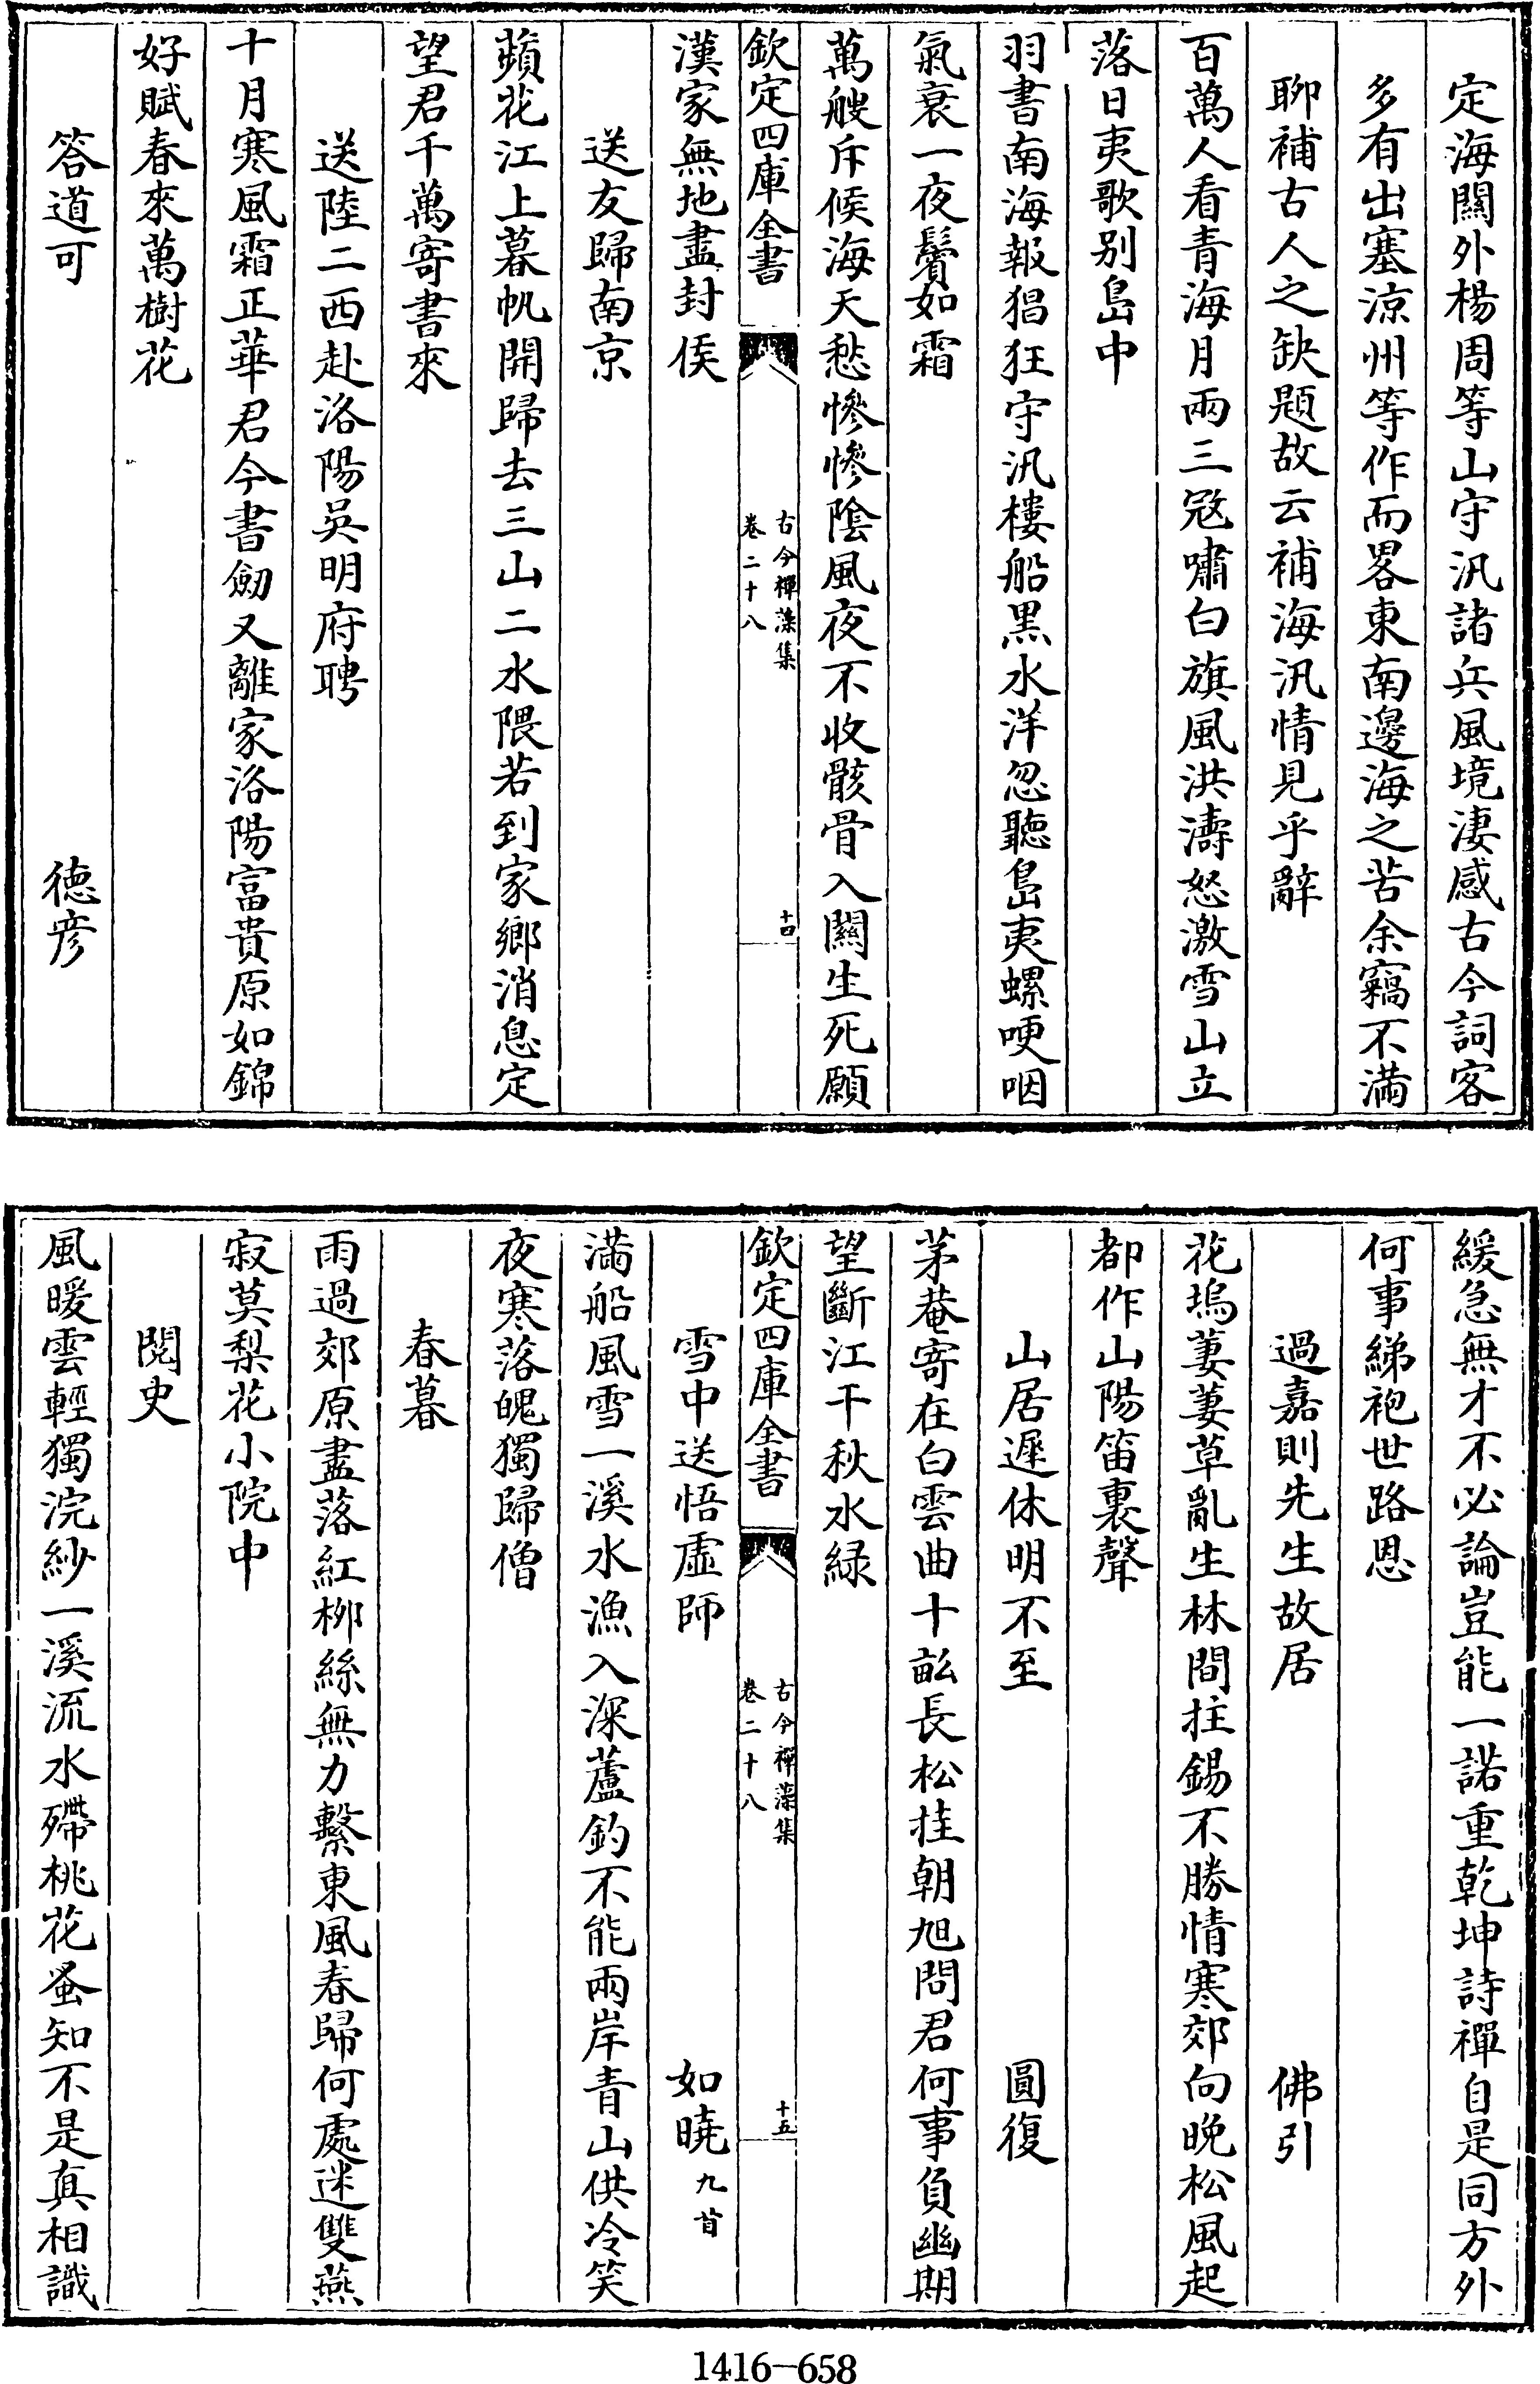 定海關外楊周等山守汛諸兵風境淒感古今詞客
多有出塞涼州等作而畧東南邊海之苦余竊不滿
聊補古人之缺題故云補海汛情見乎辭
百萬人看青海月兩三寇嘯白旗風洪濤怒激雪山立
落日夷歌别島中
羽書南海報猖狂守汛樓船黑水洋忽聽島夷螺哽咽
氣衰一夜鬢如霜
萬艘斥候海天愁慘慘陰風夜不收骸骨入關生死願
欽定四庫全書
古今禪藻集
卷二十八
十四
漢家無地盡封侯
送友歸南京
蘋花江上暮帆開歸去三山二水隈若到家鄉消息定
望君千萬寄書來
送陸二西赴洛陽吳明府聘
十月寒風霜正華君今書劒又離家洛陽富貴原如錦
好賦春來萬樹花
答道可 徳彦
緩急無才不必論豈能一諾重乾坤詩禪自是同方外
何事綈袍世路恩
過嘉則先生故居 佛引
花塢萋萋草亂生林間拄錫不勝情寒郊向晚松風起
都作山陽笛裏聲
山居遲休明不至 圓復
茅菴寄在白雲曲十畝長松挂朝旭問君何事負幽期
望斷江干秋水緑
欽定四庫全書
古今禪藻集
卷二十八
十五
雪中送悟虛師 如曉九首
滿船風雪一溪水漁入深蘆釣不能兩岸青山供冷笑
夜寒落魄獨歸僧
春暮
雨過郊原盡落紅柳絲無力繫東風春歸何處迷雙燕
寂莫梨花小院中
閱史
風暖雲輕獨浣紗一溪流水殢桃花蚤知不是真相識
1416-658